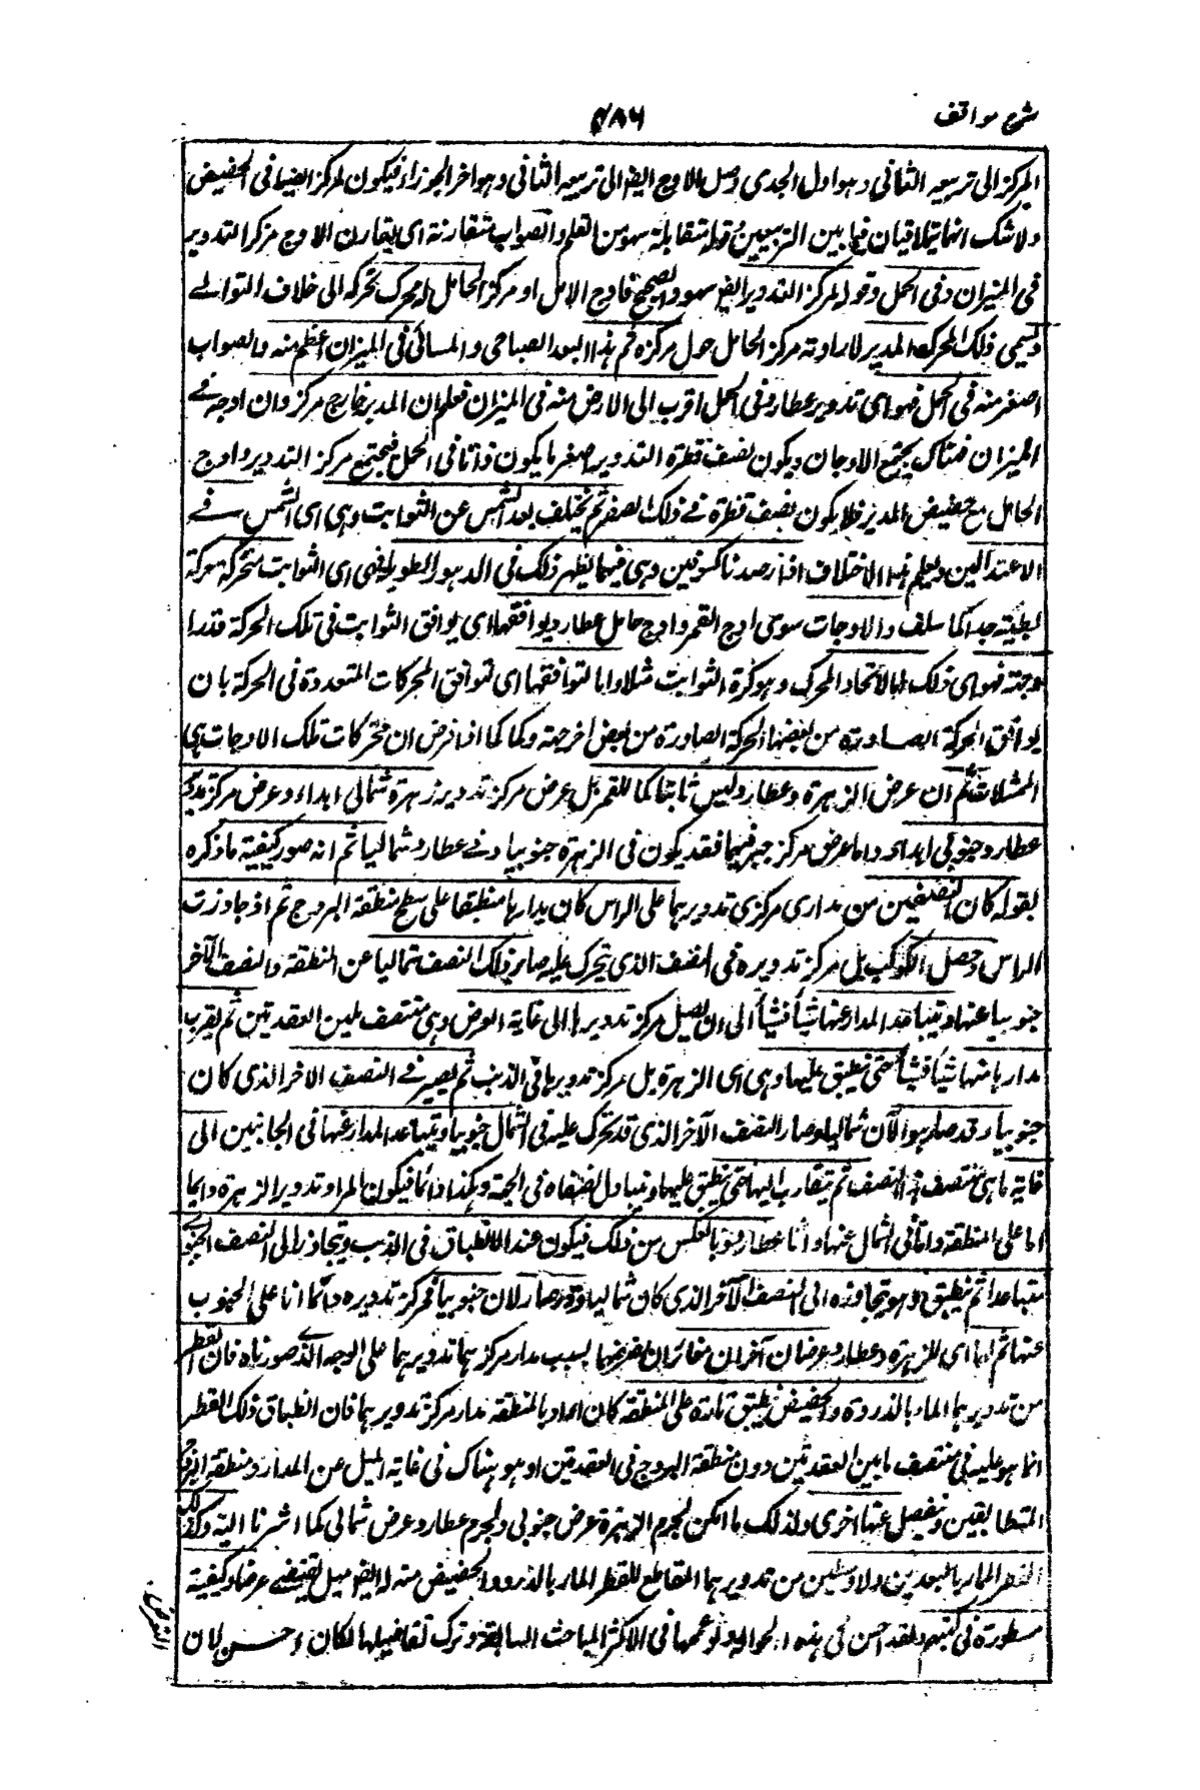 شرح مواقف
٤٨٦
المركز الى تربيعه الثانى وهو اول الجدى وصل الاوج ايضا الى تربيعه الثانى وهو اخر الجوزاء فيكون المركز ايضا فى الحضيض
ولا شك انهما يتلاقيان فيما بين التربيعين قوله متقابلة سهو من القلم والصواب متقارنة اى يقارن الاوج مركز التدوير
فى الميزان وفى الحمل وقوله لمركز التدوير ايضا سهو والصحيح فاوج الحامل او مركز الحامل له محرك يحركه الى خلاف التوالے
ويسمى ذلك المحرك المدير لادارته مركز الحامل حول مركزه ثم هذا البعد الصباحى والمسائى فى الميزان اعظم منه والصواب
اصغر منه فى الحمل فهو اى تدوير عطارد فى الحمل اقرب الى الارض منه فى الميزان فعلم ان المدير خارج مركز وان اوجه فے
الميزان فهناك يجتمع الاوجان ويكون نصف قطرة التدوير اصغر ما يكون واما فى الحمل فيجتمع مركز التدوير واوج
الحامل مع حضيض المدير فلا يكون نصف قطره فے ذلك الصغر ثم يختلف بعد الشمس عن الثوابت وهى اى الشمس فے
الاعتدالين ويعلم هذا الاختلاف اذا رصدنا كسوفين وهى فيهما يظهر ذلك فى الدهور الطويلة فهى اى الثوابت متحركة حركة
بطيئة جدا كما سلف والاوجات سوى اوج القمر واوج حامل عطارد يوافقها اى يوافق الثوابت فى تلك الحركة قدرا
وجهة فهو اى ذلك اما لاتحاد المحرك وهو كرة الثوابت مثلا واما لتوافقها اى لتوافق المحركات المتعددة فى الحركة بان
يوافق الحركة الصادرة من بعضها الحركة الصادرة من بعض اخر جهة وكما كما اذا فرض ان محركات تلك الاوجات هى
الممثلات ثم ان عرض الزهرة وعطارد ليس ثابتا كما للقمر بل عرض مركز تدوير زهرة شمالى ابدا وعرض مركز تدوير
عطارد جنوبى ابدا واما عرض مركز جرميهما فقد يكون فى الزهرة جنوبيا وفے عطارد شماليا ثم انه صور كيفية ما ذكره
بقوله كان النصفين من مدارى مركزى تدويرهما على الراس كان مدارها منطبقا على سطح منطقة البروج ثم اذ جاوزت
الراس وحصل الكوكب بل مركز تدويره فى النصف الذى يتحرك عليه صار ذلك النصف شماليا عن المنطقة والنصف الآخر
جنوبيا عنها ويتباعد المدار عنها شيأ فشيأ الى ان يصل مركز تدويرها الى غاية العرض وهى منتصف ما بين العقدتين ثم يقرب
مدارها منها شيأ فشيأ حتى ينطبق عليها وهى اى الزهرة بل مركز تدويرها فى الذنب ثم يصير فے النصف الاخر الذى كان
جنوبيا وقد صار هو الآن شماليا وصار النصف الآخر الذى قد تحرك عليه فى الشمال جنوبيا ويتباعد المدار عنها فى الجانبين الى
غاية ما هى منتصف هذا النصف ثم يتقارب اليها حتى ينطبق عليها ويتبادل نصفاه فى الجهة وهكذا دائما فيكون المدار وتدوير الزهرة دايما
اما على المنطقة واما فى الشمال عنها واما عطارد فبالعكس من ذلك فيكون عند الانطباق فى الذنب ويتجاوز الى النصف الجنوبى
متباعدا ثم ينطبق وهو يتجاوزه الى النصف الآخر الذى كان شماليا وقد صار الان جنوبيا فمركز تدويره دائما اما على الجنوب
عنها ثم لهما اى للزهرة وعطارد عرضان آخران مغائران لعرضهما بسبب مدار مركزهما تدويرهما على الوجه الذے صورناه فان القطر
من تدويرهما المار بالذروة والحضيض ينطبق تارة على المنطقة كان المراد بالمنطقة مدار مركز تدويرهما فان انطباق ذلك القطر
انما هو عليه فى منتصف ما بين العقدتين دون منطقة البروج فى العقدتين اذ هو هناك فى غاية الميل عن المدار ومنطقة البروج
المتطابقين وينفصل عنها اخرى ولذلك ما امكن لجرم الزهرة عرض جنوبى ولجرم عطارد عرض شمالى كما اشرنا اليه وكذلك
القطر المار بالبعدين الاوسطين من تدويرهما المقاطع للقطر المار بالذروة والحضيض منه له ايضا ميل يقتضے عرضا وكيفية
مسطورة فى كتبهم ولقد احسن فى هذه الحوالة ولو عممها فى الاكثر المباحث السابقة وترك تفاصيلها لكان احسن لان